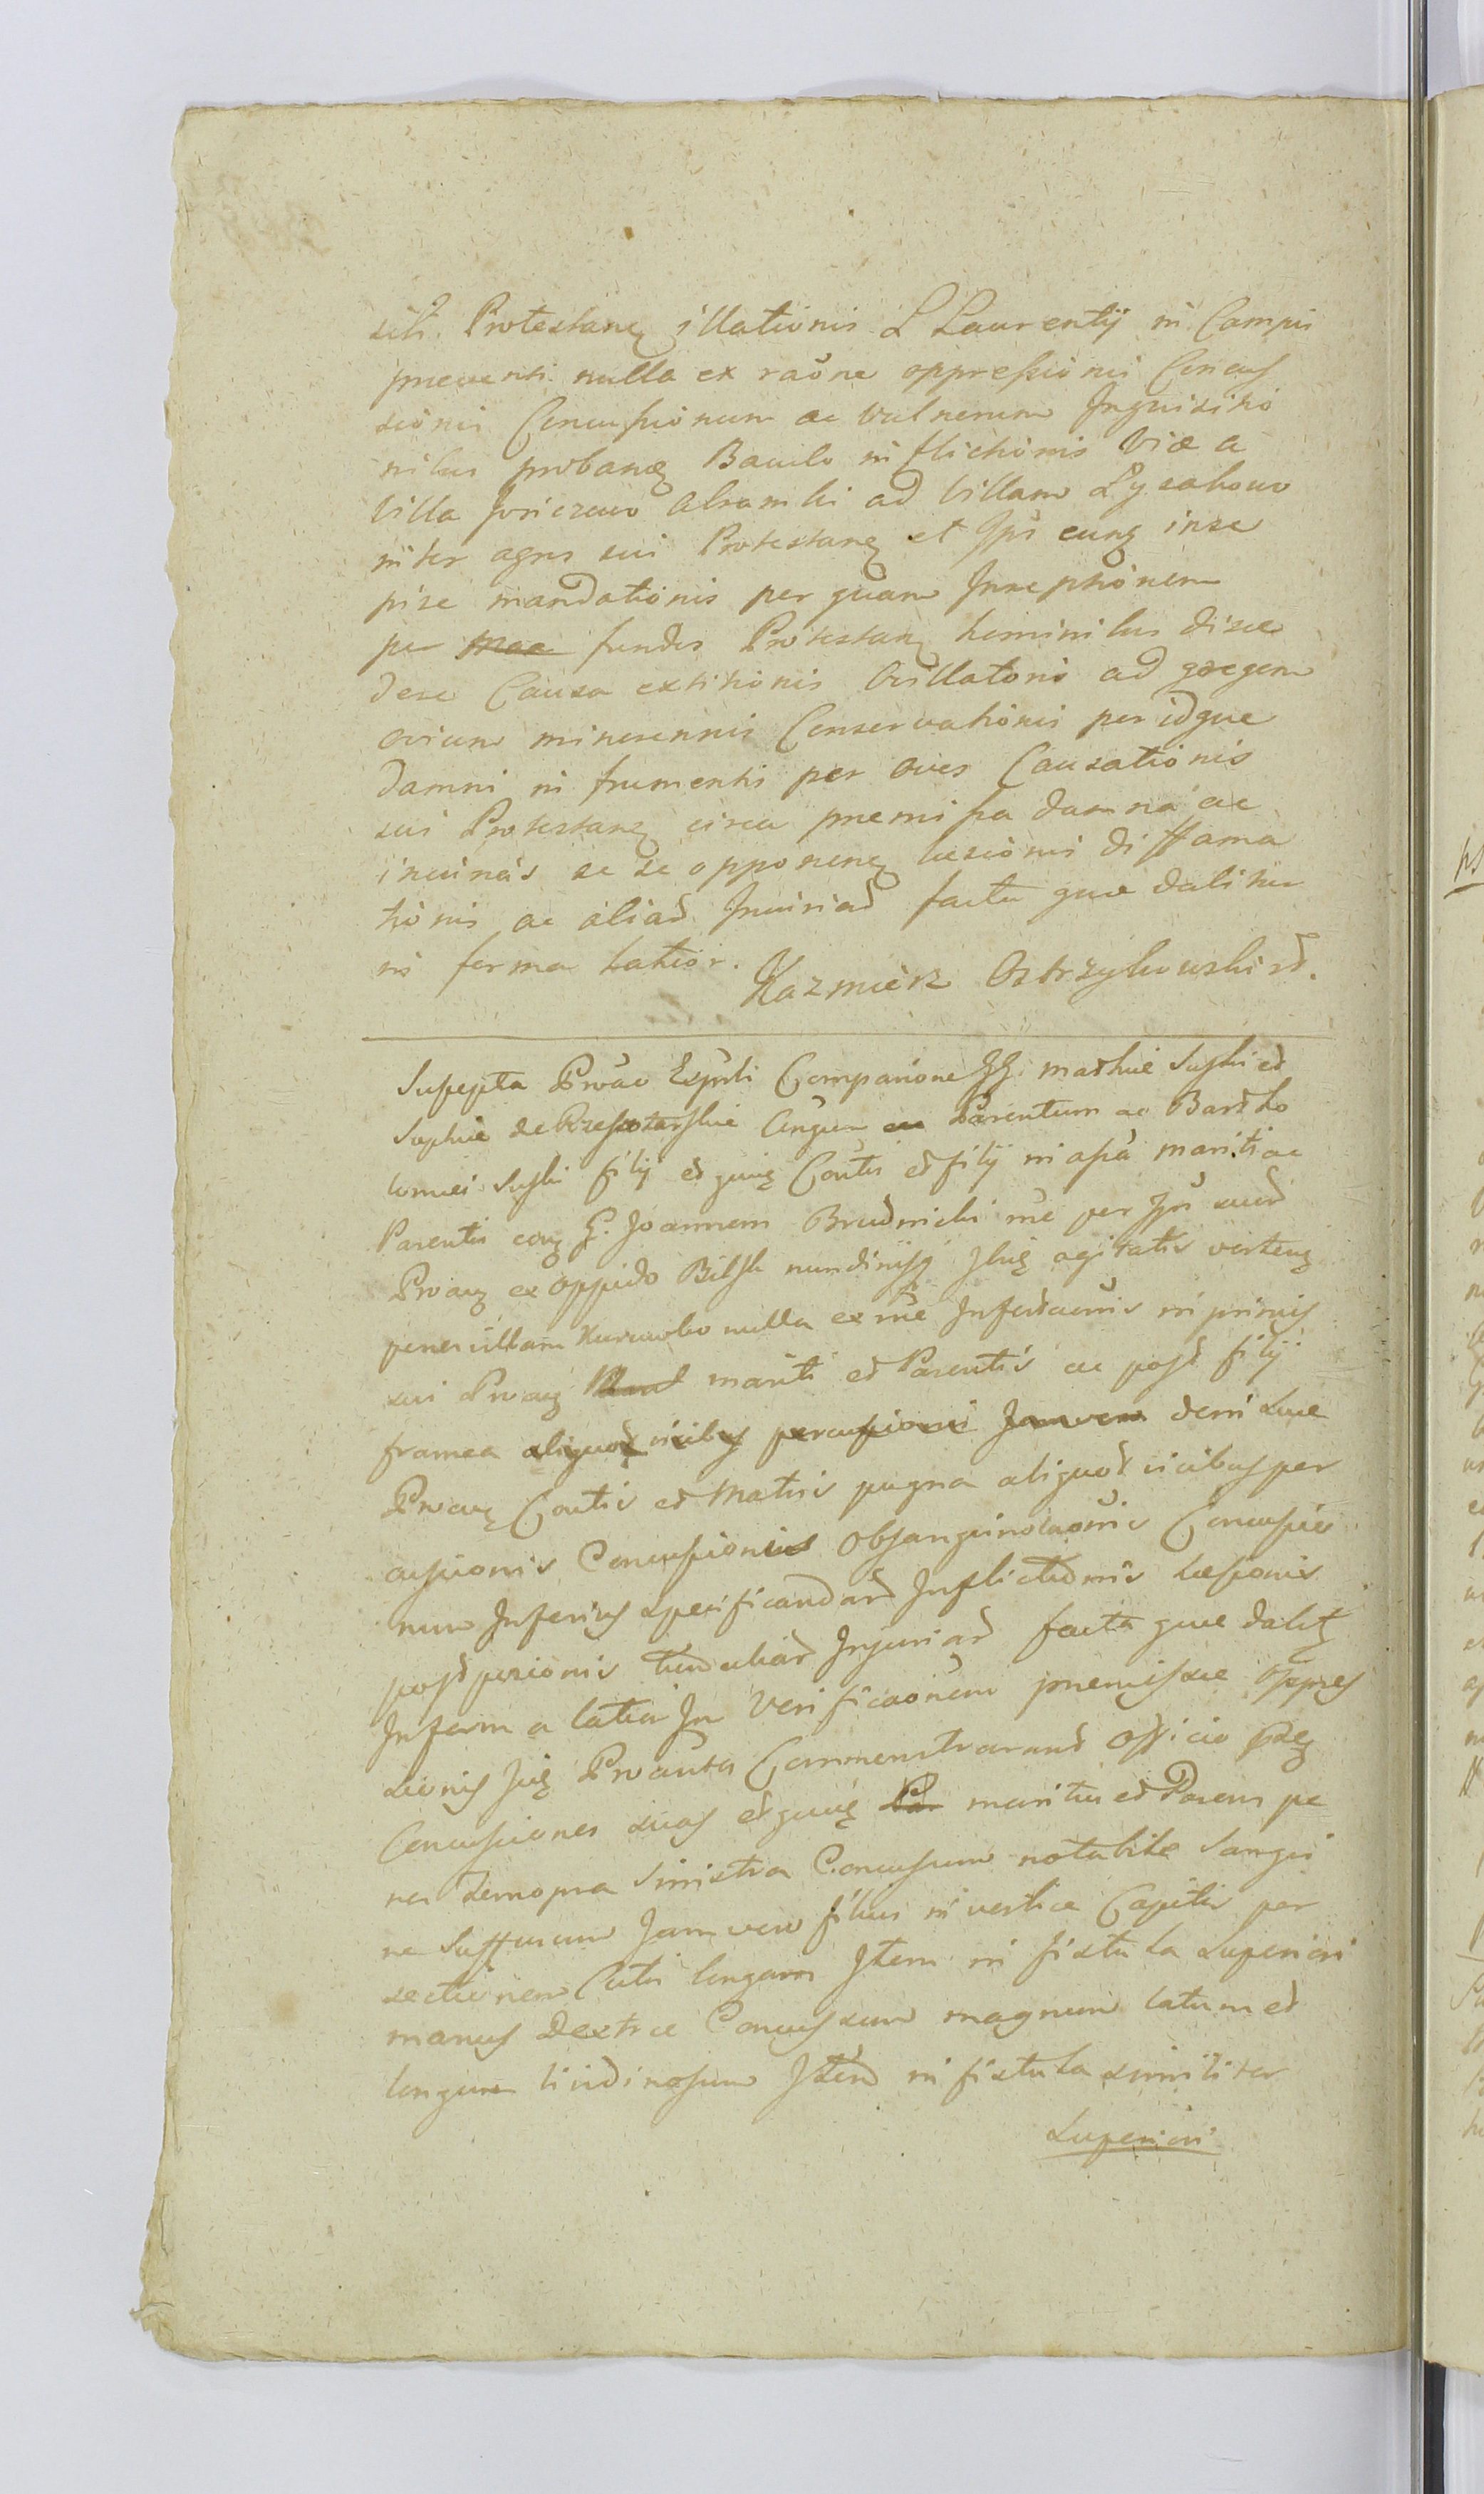 sibi Protestanӡ illationis L Laurentij in Campis
praeventi nulla ex raõne oppressionis Concus
sionis Concussionum ac vulnerum Inquisitio
nibus probanӡ Baculo inflictionis Viæ a
villa Joriczewo Abramki ad villam Lyzakowo
inter agros sui Protestanӡ et Ipũ eunӡ ince
pisse mandationis per quam Inceptionem
per Mae fundos Protestanӡ hominibus disce
dere Causa extitionis Ovillatoris ad gregem
ovium minorennis Conservationis per idque
damni in frumentis per oves Causationis
sui Protestanӡ circa premissa damna ac
se se opponenӡ læsionis diffama
tionis ac aliarũ Iniuriarũ facta quæ dabitur
in forma latior.
Kazmierz Ostrzykowski
Suscepta Prõae Expũti Comparione GG. Mathiæ Suski et
Sophiæ de Rzeszotarskie Cõngum ac Parentum ac Bartho
lomæi Suski filij et quidӡ Cõntis et filij in assã mariti ac
Parentis conӡ G. Joannem Brudnicki rñe per Ipũ suorũ
Prõanӡ ex oppido Bilsk nundinisqӡ Ibidӡ agitatis vertenӡ
penes villam Kurowko nulla ex rñe Infestaõnis in primis
sui Prõanӡ mariti et Parentis ac post filij
framea aliquot vicibus percussionis Jamvero deni suæ
Prõanӡ Cõntis et Matris pugna aliquot vicibus per
cussionis Concussionis Obsanguinolaõnis Concussio
num Inferius specificandarũ Inflictionis Læsionis
aliarũ Injuriarũ facta quæ dabitӡ
In forma latior In Verificaõnem præmissæ oppres
sionis Prõantes Commonstrarunt officio pñtӡ
Concussiones suas et quidӡ Pa maritus et Parens pe
nes Tempora Sinistra Concussum notabile Sangui
ne Suffusum Jamvero filius in vertice Capitis per
sectionem Cutis longam Item in fistula Superiori
manus Dextræ Concussum magnum latum et
longum lividinosum Item in fistula similiter
Superiori